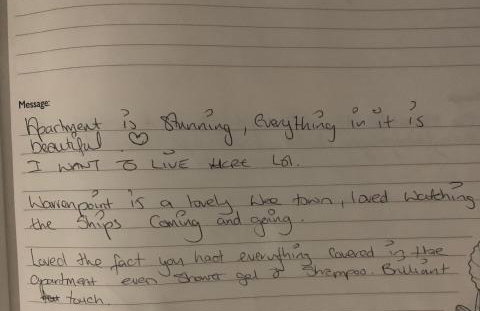 Message:
Apartment is Stunning, Everything in it is
beautiful. ♡
I WANT TO LIVE HERE Lol.
Warrenpoint is a lovely wee town, loved watching
the Ships Coming and going.
Loved the fact you had everything Covered in the
apartment even Shower gel & Shampoo. Brilliant
touch.